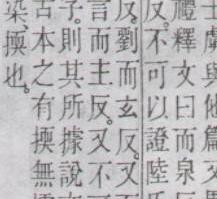 與他篇
禮釋文曰而泉
反。不可以證陸氏
反。劉而玄反。又
言而主反。又不
子。則其所據說
古本之有㨎無
染、㨎也。